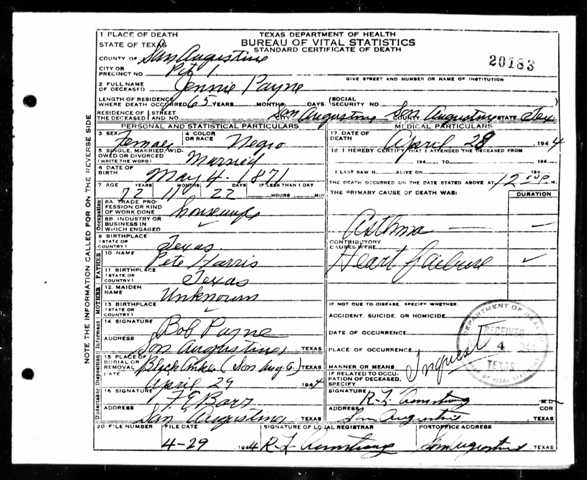 TEXAS DEPARTMENT OF HEALTH
BUREAU OF VITAL STATISTICS
STANDARD CERTIFICATE OF DEATH
20183
1 PLACE OF DEATH
STATE OF TEXAS
COUNTY OF San Augustine
CITY OR PRECINCT NO. Pct 1
GIVE STREET AND NUMBER OR NAME OF INSTITUTION
2 FULL NAME OF DECEASED Jennie Payne
LENGTH OF RESIDENCE WHERE DEATH OCCURRED 65 YEARS MONTHS DAYS (SOCIAL SECURITY NO.
RESIDENCE OF THE DECEASED STREET AND NO. San Augustine San Augustine STATE Tex
PERSONAL AND STATISTICAL PARTICULARS
3 SEX Female
4 COLOR OR RACE Negro
5 SINGLE, MARRIED, WIDOWED OR DIVORCED (WRITE THE WORD) Married
6 DATE OF BIRTH May 4 - 1871
7 AGE 72 11 22 IF LESS THAN 1 DAY
8A TRADE, PROFESSION OR KIND OF WORK DONE housewife
8B INDUSTRY OR BUSINESS IN WHICH ENGAGED
9 BIRTHPLACE (STATE OR COUNTRY) Texas
10 NAME Pete Harris
11 BIRTHPLACE (STATE OR COUNTRY) Texas
12 MAIDEN NAME Unknown
13 BIRTHPLACE (STATE OR COUNTRY)
14 SIGNATURE Bob Payne
ADDRESS San Augustine TEXAS
15 PLACE OF BURIAL OR REMOVAL (San Aug) TEXAS
April 29 1944
16 SIGNATURE
ADDRESS San Augustine TEXAS
MEDICAL PARTICULARS
17 DATE OF DEATH April 28, 1944
18 I HEREBY CERTIFY THAT I ATTENDED THE DECEASED FROM
194 TO 194
I LAST SAW H ALIVE ON 194
THE DEATH OCCURRED ON THE DATE STATED ABOVE AT 12 M.
THE PRIMARY CAUSE OF DEATH WAS: DURATION
Asthma
CONTRIBUTORY CAUSES WERE
Heart failure
IF NOT DUE TO DISEASE, SPECIFY:
ACCIDENT, SUICIDE, OR HOMICIDE
DATE OF OCCURRENCE
PLACE OF OCCURRENCE
MANNER OR MEANS
Inquest
IF RELATED TO OCCUPATION OF DECEASED, SPECIFY
SIGNATURE R L Armstrong
ADDRESS San Augustine TEXAS
RECEIVED
4
TEXAS
BUREAU OF VITAL STATISTICS
20 FILE NUMBER FILE DATE SIGNATURE OF LOCAL REGISTRAR POSTOFFICE ADDRESS
4-29 1944 R L Armstrong San Augustine TEXAS
NOTE THE INFORMATION CALLED FOR ON THE REVERSE SIDE